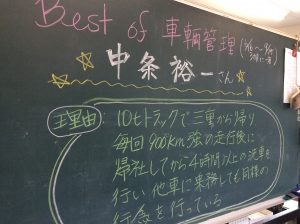 Best of 車輌管理
中条裕一さん
理由 10tトラックで三重から帰り
毎回900km強の走行後に
帰社してから4時間以上の洗車を
行い他車に乗務しても同様の
行為を行っている